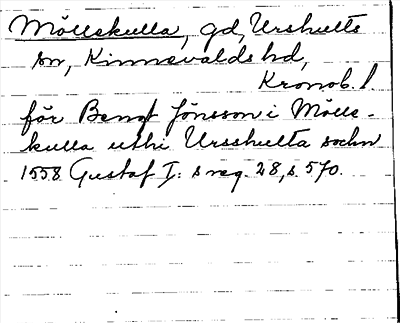 Möllskulla, gd, Urshults
sn, Kinnevalds hd,
Kronob. l.
för Bengt Jönsson i Mölls-
kulla uthi Ursshulta sochn
1558 Gustaf I: s reg. 28, s. 570.